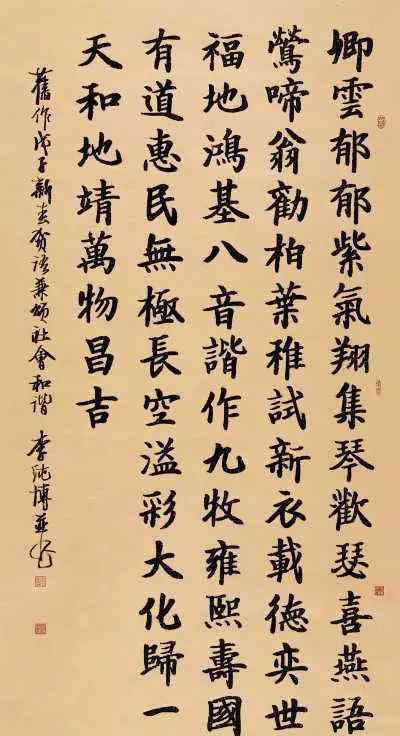 卿雲郁郁紫氣翔集琴歡瑟喜燕語
鶯啼翁勸柏葉稚試新衣載德奕世
福地鴻基八音諧作九牧雍熙壽國
有道惠民無極長空溢彩大化歸一
天和地靖萬物昌吉
舊作戊子新春賀語兼頌社會和諧 李